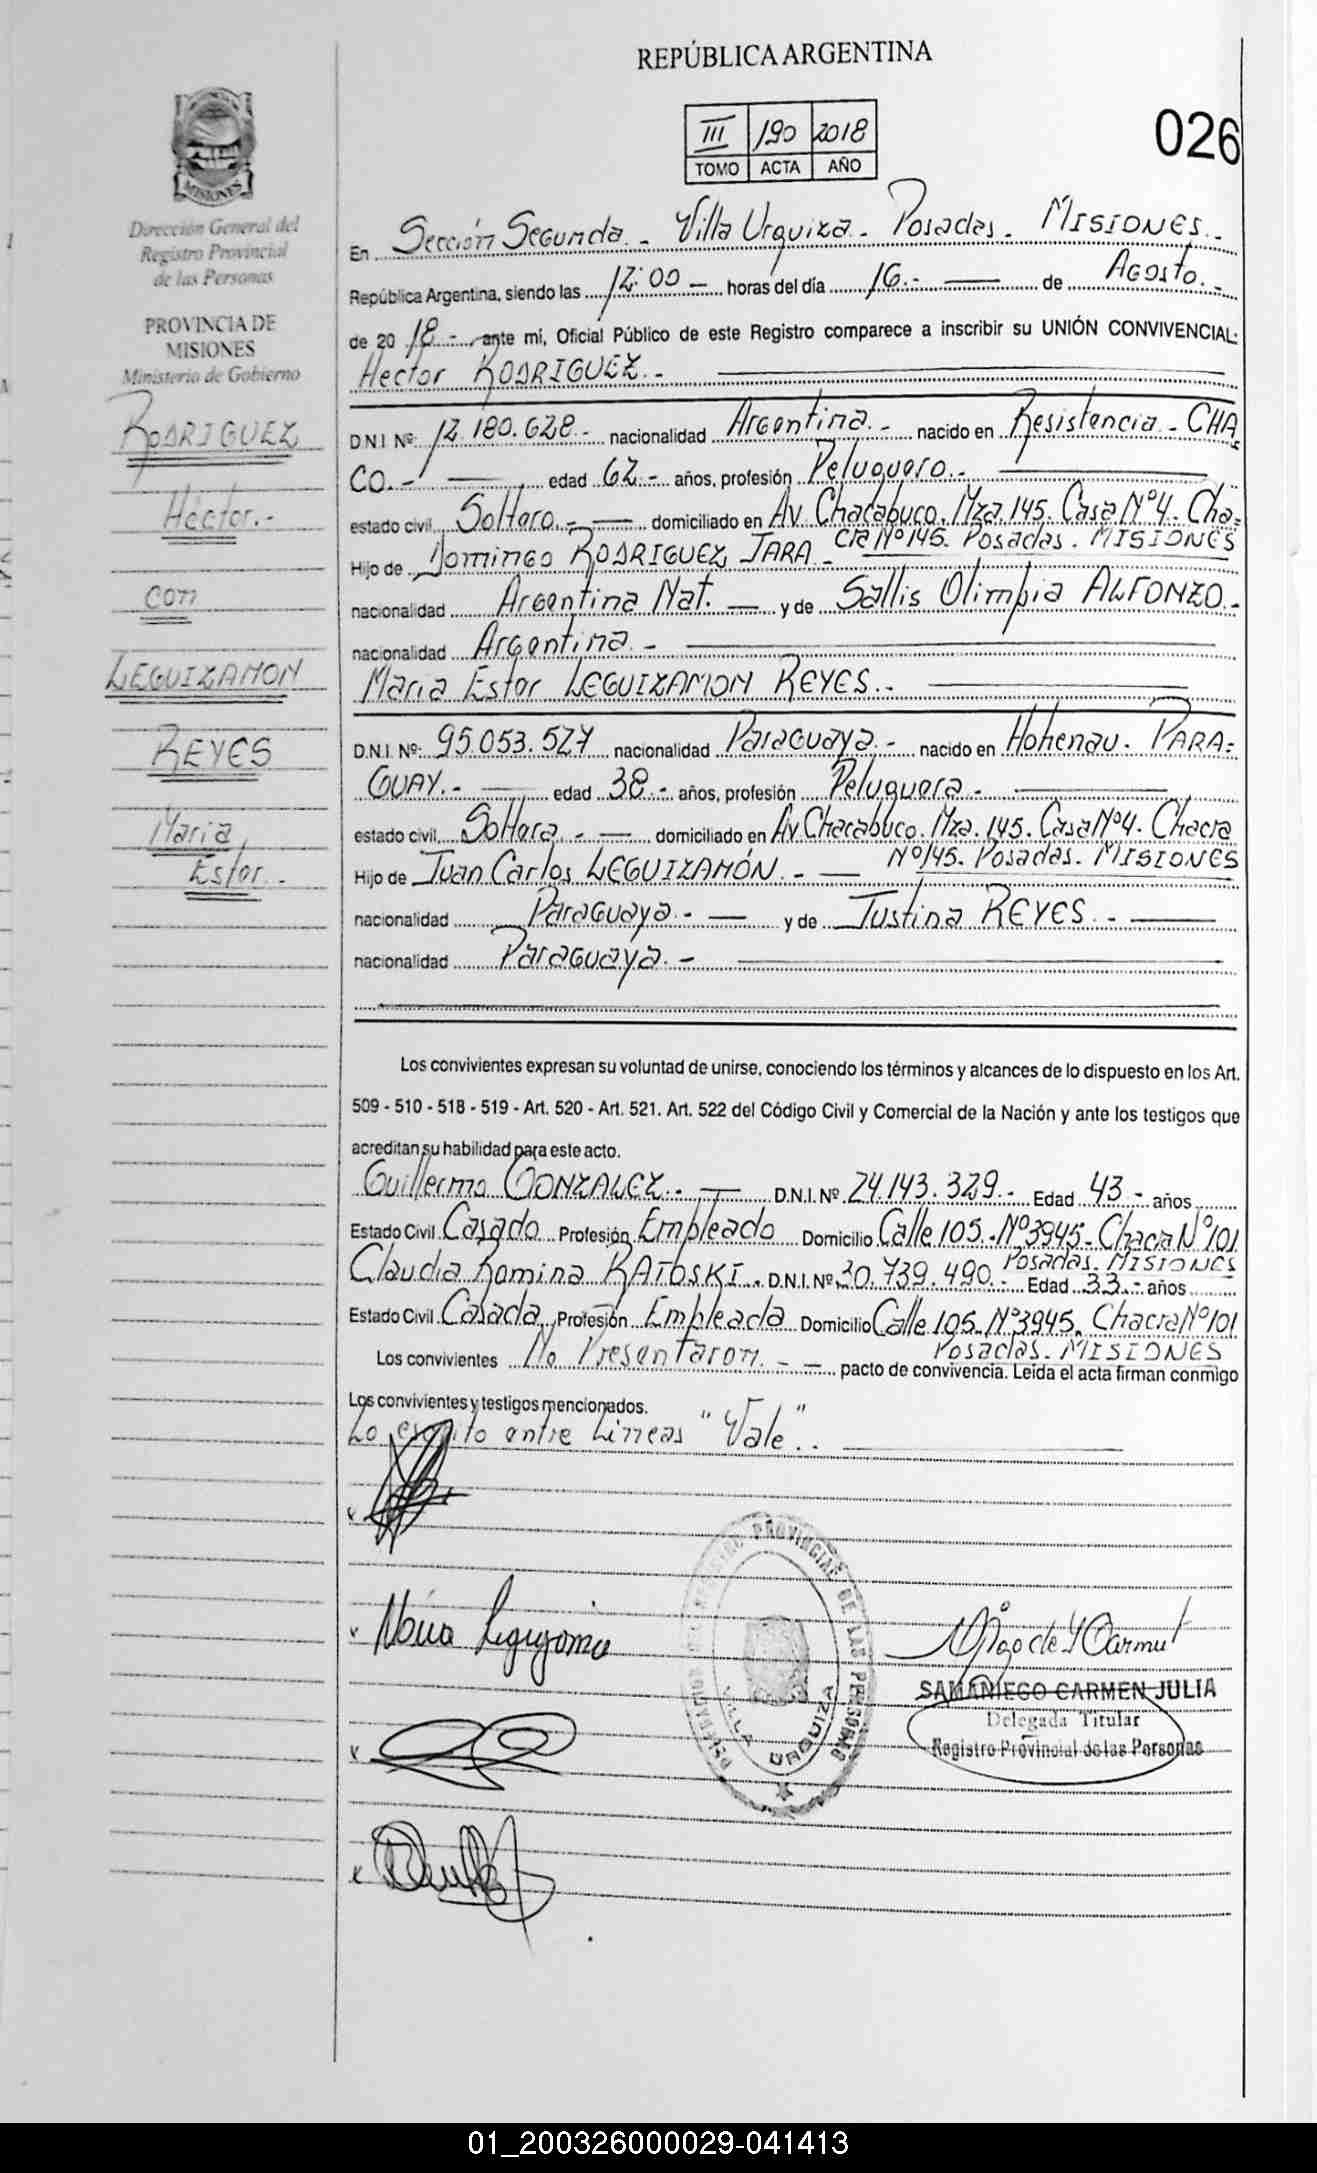 REPÚBLICA ARGENTINA
III 190 2018
TOMO ACTA AÑO
026
MISIONES
Dirección General del
Registro Provincial
de las Personas
PROVINCIA DE
MISIONES
Ministerio de Gobierno
RODRIGUEZ
Hector.-
con
LEGUIZAMON
REYES
Maria
Ester.-
En Sección Segunda - Villa Urquiza - Posadas - MISIONES.-
República Argentina, siendo las 12:00 - horas del día 16.- de Agosto.-
de 20 18 - ante mí, Oficial Público de este Registro comparece a inscribir su UNIÓN CONVIVENCIAL:
Hector RODRIGUEZ.-
D.N.I. Nº: 12.180.628.- nacionalidad Argentina.- nacido en Resistencia - CHA
CO.- edad 62.- años, profesión Peluquero.-
estado civil Soltero.- domiciliado en Av. Chacabuco. Mza. 145. Casa Nº4. Cha=
cra Nº146. Posadas. MISIONES
Hijo de Domingo RODRIGUEZ JARA -
nacionalidad Argentina Nat. y de Sallis Olimpia ALFONZO.-
nacionalidad Argentina.-
Maria Ester LEGUIZAMON REYES.-
D.N.I. Nº: 95.053.527 nacionalidad Paraguaya.- nacido en Hohenau - PARA=
GUAY.- edad 38.- años, profesión Peluquera.-
estado civil Soltera.- domiciliado en Av. Chacabuco. Mza. 145. Casa Nº4. Chacra
Nº145. Posadas. MISIONES
Hijo de Juan Carlos LEGUIZAMÓN.-
nacionalidad Paraguaya.- y de Justina REYES.-
nacionalidad Paraguaya.-
Los convivientes expresan su voluntad de unirse, conociendo los términos y alcances de lo dispuesto en los Art.
509 - 510 - 518 - 519 - Art. 520 - Art. 521. Art. 522 del Código Civil y Comercial de la Nación y ante los testigos que
acreditan su habilidad para este acto.
Guillermo GONZALEZ.- D.N.I. Nº 24.143.329.- Edad 43 - años
Estado Civil Casado Profesión Empleado Domicilio Calle 105.-Nº3945- Chacra Nº101
Posadas. MISIONES
Claudia Romina RATOSKI.- D.N.I. Nº 30.739.490.- Edad 33.- años
Estado Civil Casada Profesión Empleada Domicilio Calle 105. Nº3945. Chacra Nº101
Posadas. MISIONES
Los convivientes No Presentaron.- pacto de convivencia. Leída el acta firman conmigo
Los convivientes y testigos mencionados.
Lo escrito entre Lineas "Vale".
DELEGACION REGISTRO PROVINCIAL DE LAS PERSONAS
VILLA URQUIZA
SAMANIEGO CARMEN JULIA
Delegada Titular
Registro Provincial de las Personas
01_200326000029-041413